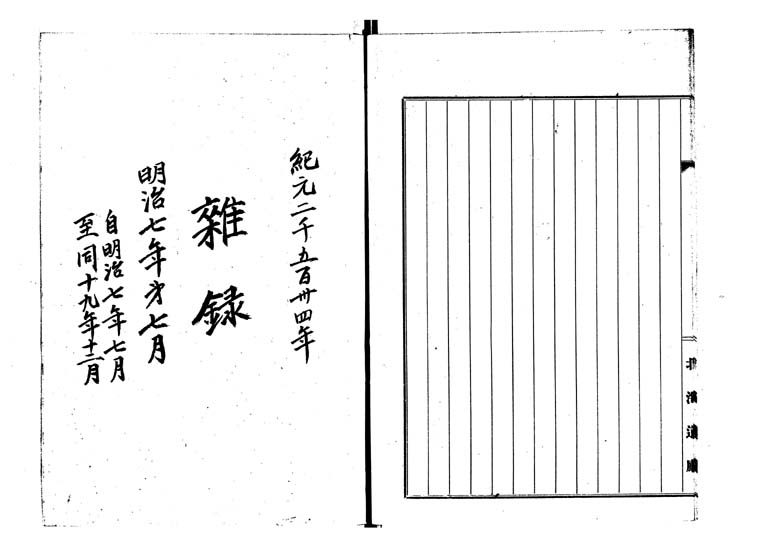 北海道廳
紀元二千五百卅四年
雜録
明治七年第七月
自明治七年七月
至同十九年十二月